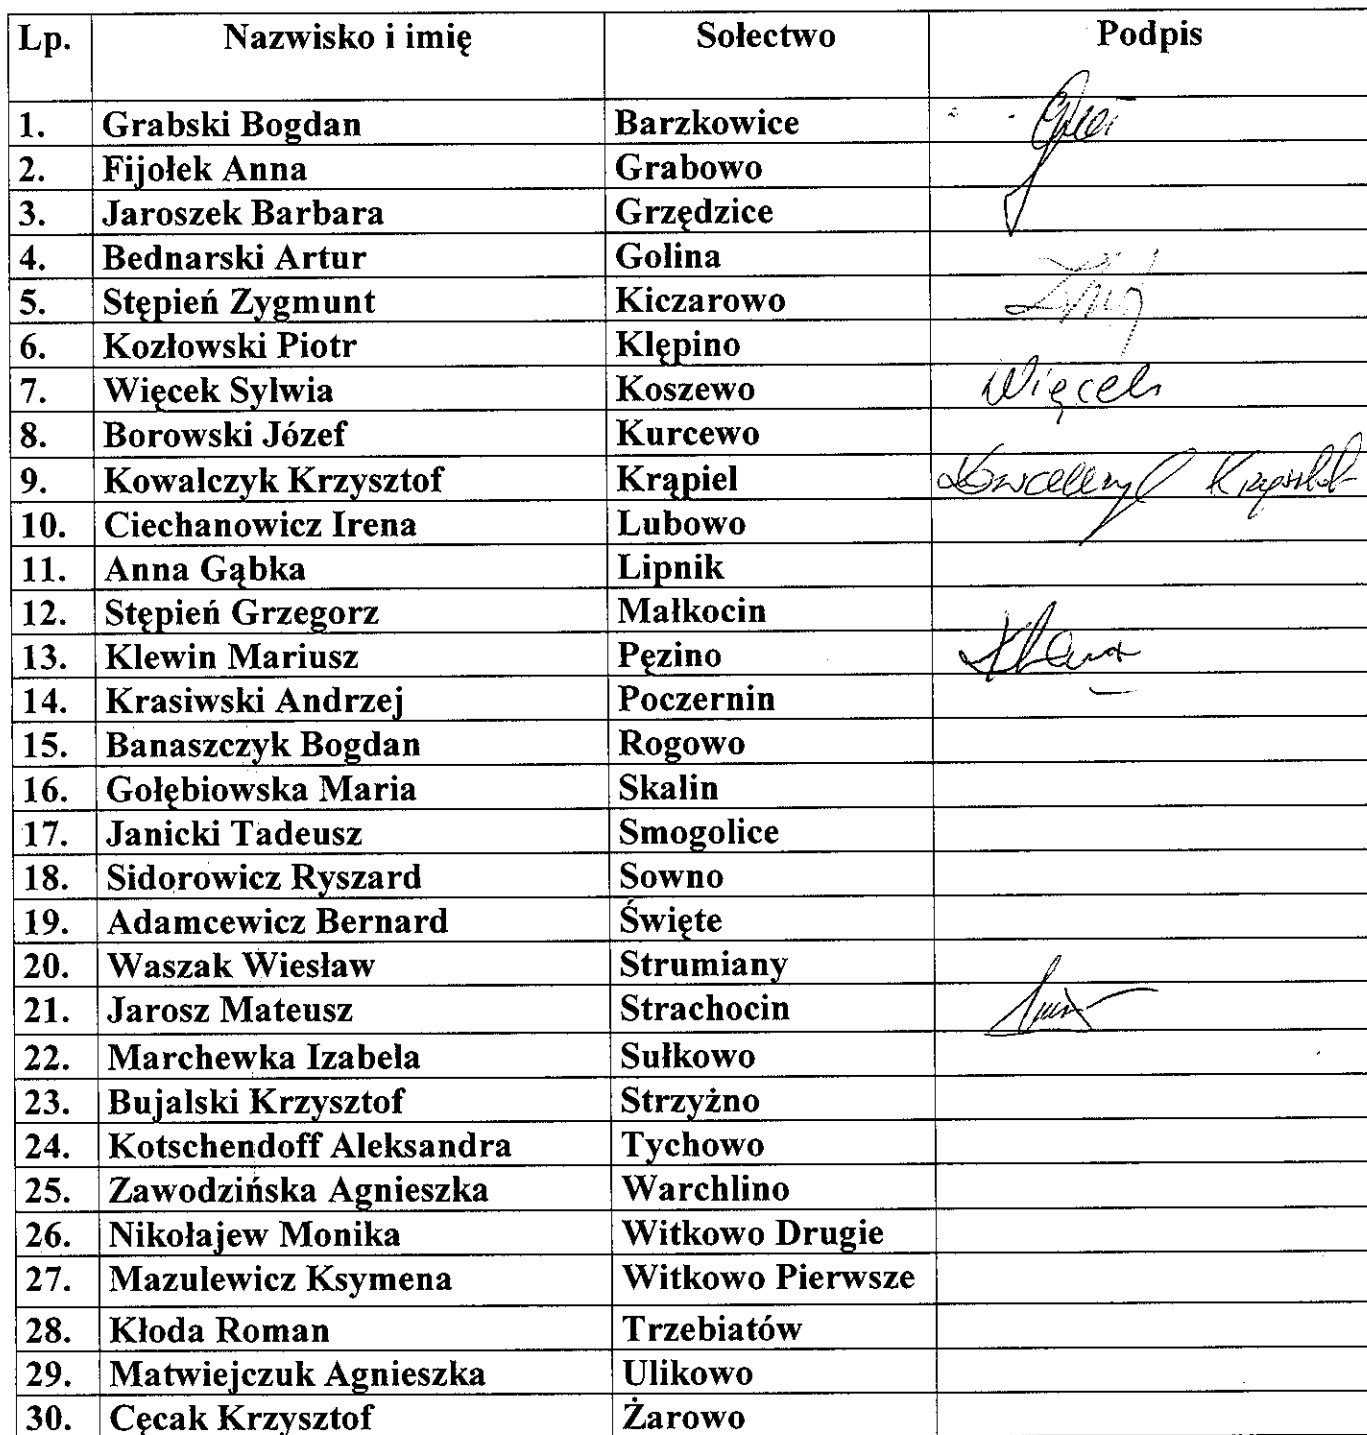 Lp. Nazwisko i imię Sołectwo Podpis
1. Grabski Bogdan Barzkowice
2. Fijołek Anna Grabowo
3. Jaroszek Barbara Grzędzice
4. Bednarski Artur Golina
5. Stępień Zygmunt Kiczarowo
6. Kozłowski Piotr Klępino
7. Więcek Sylwia Koszewo Więcek
8. Borowski Józef Kurcewo
9. Kowalczyk Krzysztof Krąpiel Kowalczyk Krzysztof
10. Ciechanowicz Irena Lubowo
11. Anna Gąbka Lipnik
12. Stępień Grzegorz Małkocin
13. Klewin Mariusz Pęzino
14. Krasiwski Andrzej Poczernin
15. Banaszczyk Bogdan Rogowo
16. Gołębiowska Maria Skalin
17. Janicki Tadeusz Smogolice
18. Sidorowicz Ryszard Sowno
19. Adamcewicz Bernard Święte
20. Waszak Wiesław Strumiany
21. Jarosz Mateusz Strachocin
22. Marchewka Izabela Sułkowo
23. Bujalski Krzysztof Strzyżno
24. Kotschendoff Aleksandra Tychowo
25. Zawodzińska Agnieszka Warchlino
26. Nikołajew Monika Witkowo Drugie
27. Mazulewicz Ksymena Witkowo Pierwsze
28. Kłoda Roman Trzebiatów
29. Matwiejczuk Agnieszka Ulikowo
30. Cęcak Krzysztof Żarowo